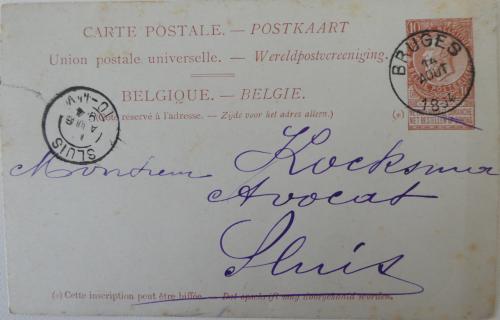 CARTE POSTALE. — POSTKAART
Union postale universelle. — Wereldpostvereeniging.
BELGIQUE. — BELGIE.
Côté réservé à l'adresse. — Zijde voor het adres alleen.) (*)
10
BRUGES
14
AOUT
NIET BESTELLEN
SLUIS
Monsieur Kocksma
Avocat
Sluis
(*) Cette inscription peut être biffée. — Dat opschrift mag doorgehaald worden.